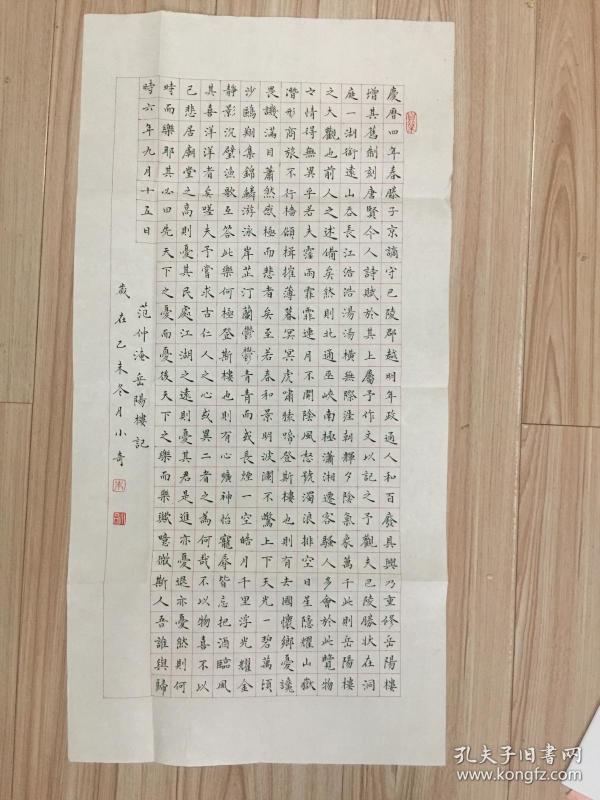 慶曆四年春滕子京謫守巴陵郡越明年政通人和百廢具興乃重修岳陽樓
增其舊制刻唐賢今人詩賦於其上屬予作文以記之予觀夫巴陵勝狀在洞
庭一湖銜遠山吞長江浩浩湯湯橫無際涯朝輝夕陰氣象萬千此則岳陽樓
之大觀也前人之述備矣然則北通巫峽南極瀟湘遷客騷人多會於此覽物
之情得無異乎若夫霪雨霏霏連月不開陰風怒號濁浪排空日星隱耀山嶽
潛形商旅不行檣傾楫摧薄暮冥冥虎嘯猿啼登斯樓也則有去國懷鄉憂讒
畏譏滿目蕭然感極而悲者矣至若春和景明波瀾不驚上下天光一碧萬頃
沙鷗翔集錦鱗游泳岸芷汀蘭鬱鬱青青而或長煙一空皓月千里浮光耀金
靜影沉璧漁歌互答此樂何極登斯樓也則有心曠神怡寵辱皆忘把酒臨風
其喜洋洋者矣嗟夫予嘗求古仁人之心或異二者之為何哉不以物喜不以
己悲居廟堂之高則憂其民處江湖之遠則憂其君是進亦憂退亦憂然則何
時而樂耶其必曰先天下之憂而憂後天下之樂而樂歟噫微斯人吾誰與歸
時六年九月十五日
范仲淹岳陽樓記
歲在己未冬月小奇
孔夫子旧书网
www.kongfz.com